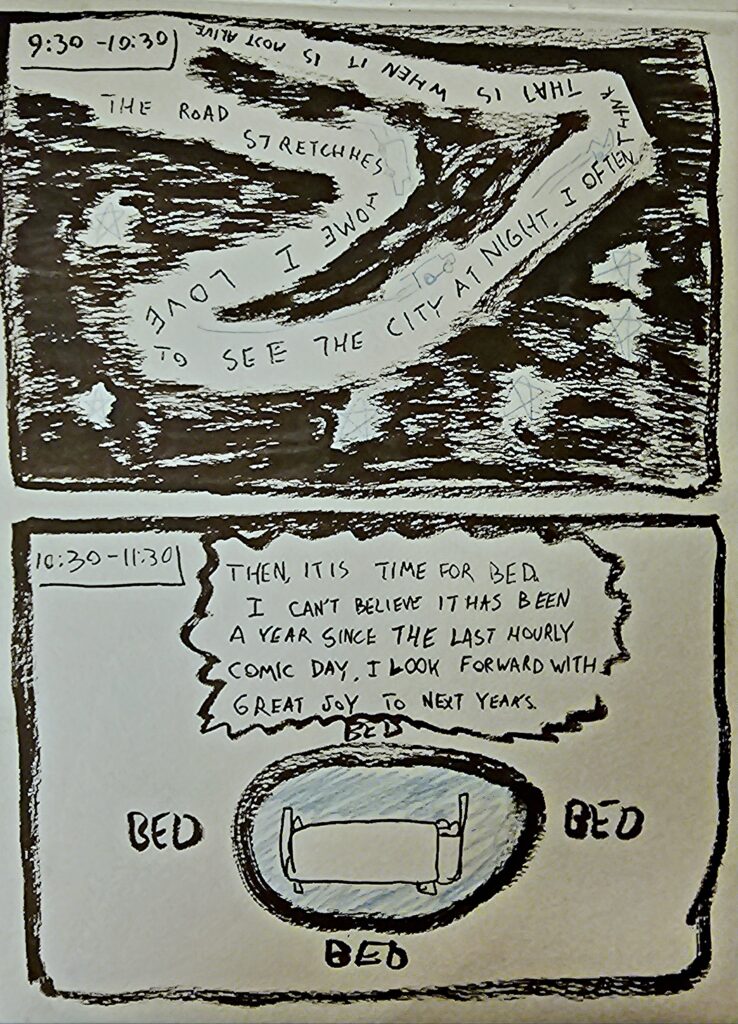 9:30 -10:30
THE ROAD
STRETCHHES
HOME I LOVE
TO SEE THE CITY AT NIGHT. I OFTEN THINK
THAT IS WHEN IT IS MOST ALIVE.
10:30-11:30
THEN, IT IS TIME FOR BED.
I CAN'T BELIEVE IT HAS BEEN
A YEAR SINCE THE LAST HOURLY
COMIC DAY. I LOOK FORWARD WITH
GREAT JOY TO NEXT YEAR'S.
BED
BED
BED
BED